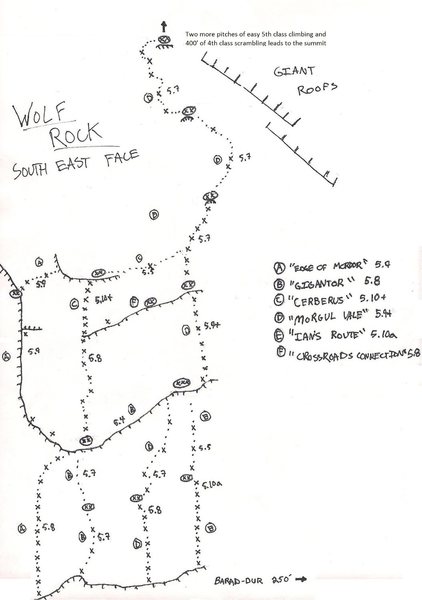 Two more pitches of easy 5th class climbing and
400' of 4th class scrambling leads to the summit
GIANT
ROOFS
WOLF
ROCK
SOUTH EAST FACE
XX
D
5.7
XX
D
5.7
XX
D
5.7
A
5.9
XX
C
XX
XX
C
5.10+
F
XX
5.9+
A
5.9
5.8
XXX
5.4
B
XX
B
5.7
D
5.7
5.5
XX
5.10a
A
5.8
XX
B
5.7
XX
5.8
D
BARAD-DUR 250'
A "EDGE OF MORDOR" 5.9
B "GIGANTOR" 5.8
C "CERBERUS" 5.10+
D "MORGUL VALE" 5.9+
E "IAN'S ROUTE" 5.10a
F "CROSSROADS CONNECTION" 5.8